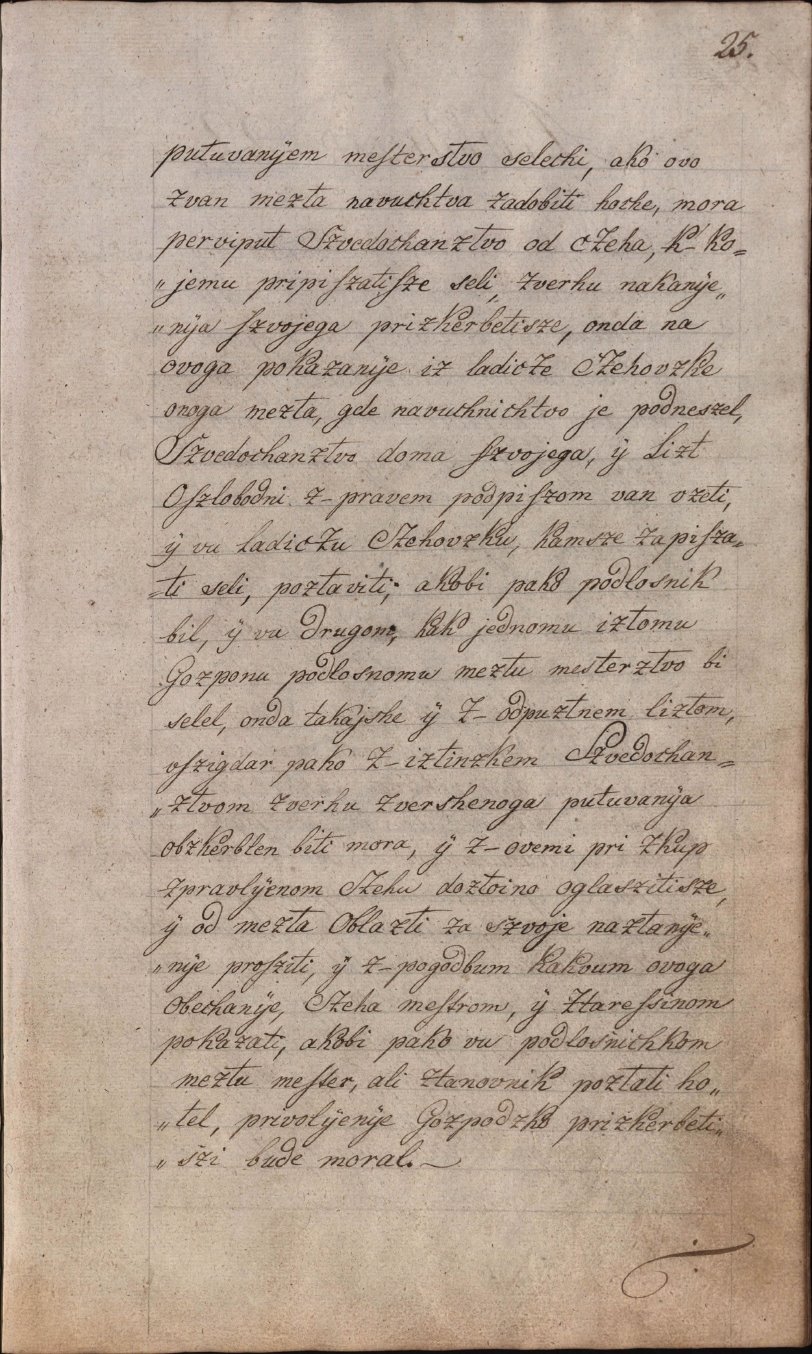 25.
putuvanÿem meſterstvo selechi, ako ovo
zvan mezta navuchtva zadobiti hoche, mora
perviput Szvedochanztvo od cZeha, k-ko=
„jemu pripiſzatiſze seli, zverhu nakanÿe„
„nÿa ſzvojega prizkerbetisze, onda na
ovoga pokazanÿe iz ladicZe CZehovzke
onoga mezta, gde navuchnichtvo je podneszel,
Szvedochanztvo doma ſzvojega, ÿ Lizt
Oſzlobodni z-pravem podpiſzom van vzeti,
ÿ vu ladicZu CZehovzku, kamsze zapiſza„
„ti seli, poztaviti; akobi pako podlosnik
bil, ÿ vu drugom, kak jednomu iztomu
Gozponu podlosnomu meztu mesterztvo bi
selel, onda takajshe ÿ Z-odpuztnem liztom,
vſzigdar pako Z-iztinzkem Szvedochan=
„ztvom zverhu zvershenoga putuvanÿa
obzkerblen biti mora, ÿ z-ovemi pri zkup
zpravlÿenom CZehu doztoino oglaszitisze,
ÿ od mezta Oblazti za szvoje naztanÿe„
„nÿe proſziti, ÿ z-pogodbum kakovum ovoga
Obechanÿe, CZeha meſtrom, ÿ Ztareſsinom
pokazati, akobi pako vu podlosnichkom
meztu meſter, ali ztanovnik poztati ho„
„tel, privolÿenÿe Gozpodzko prizkerbeti„
„szi bude moral.